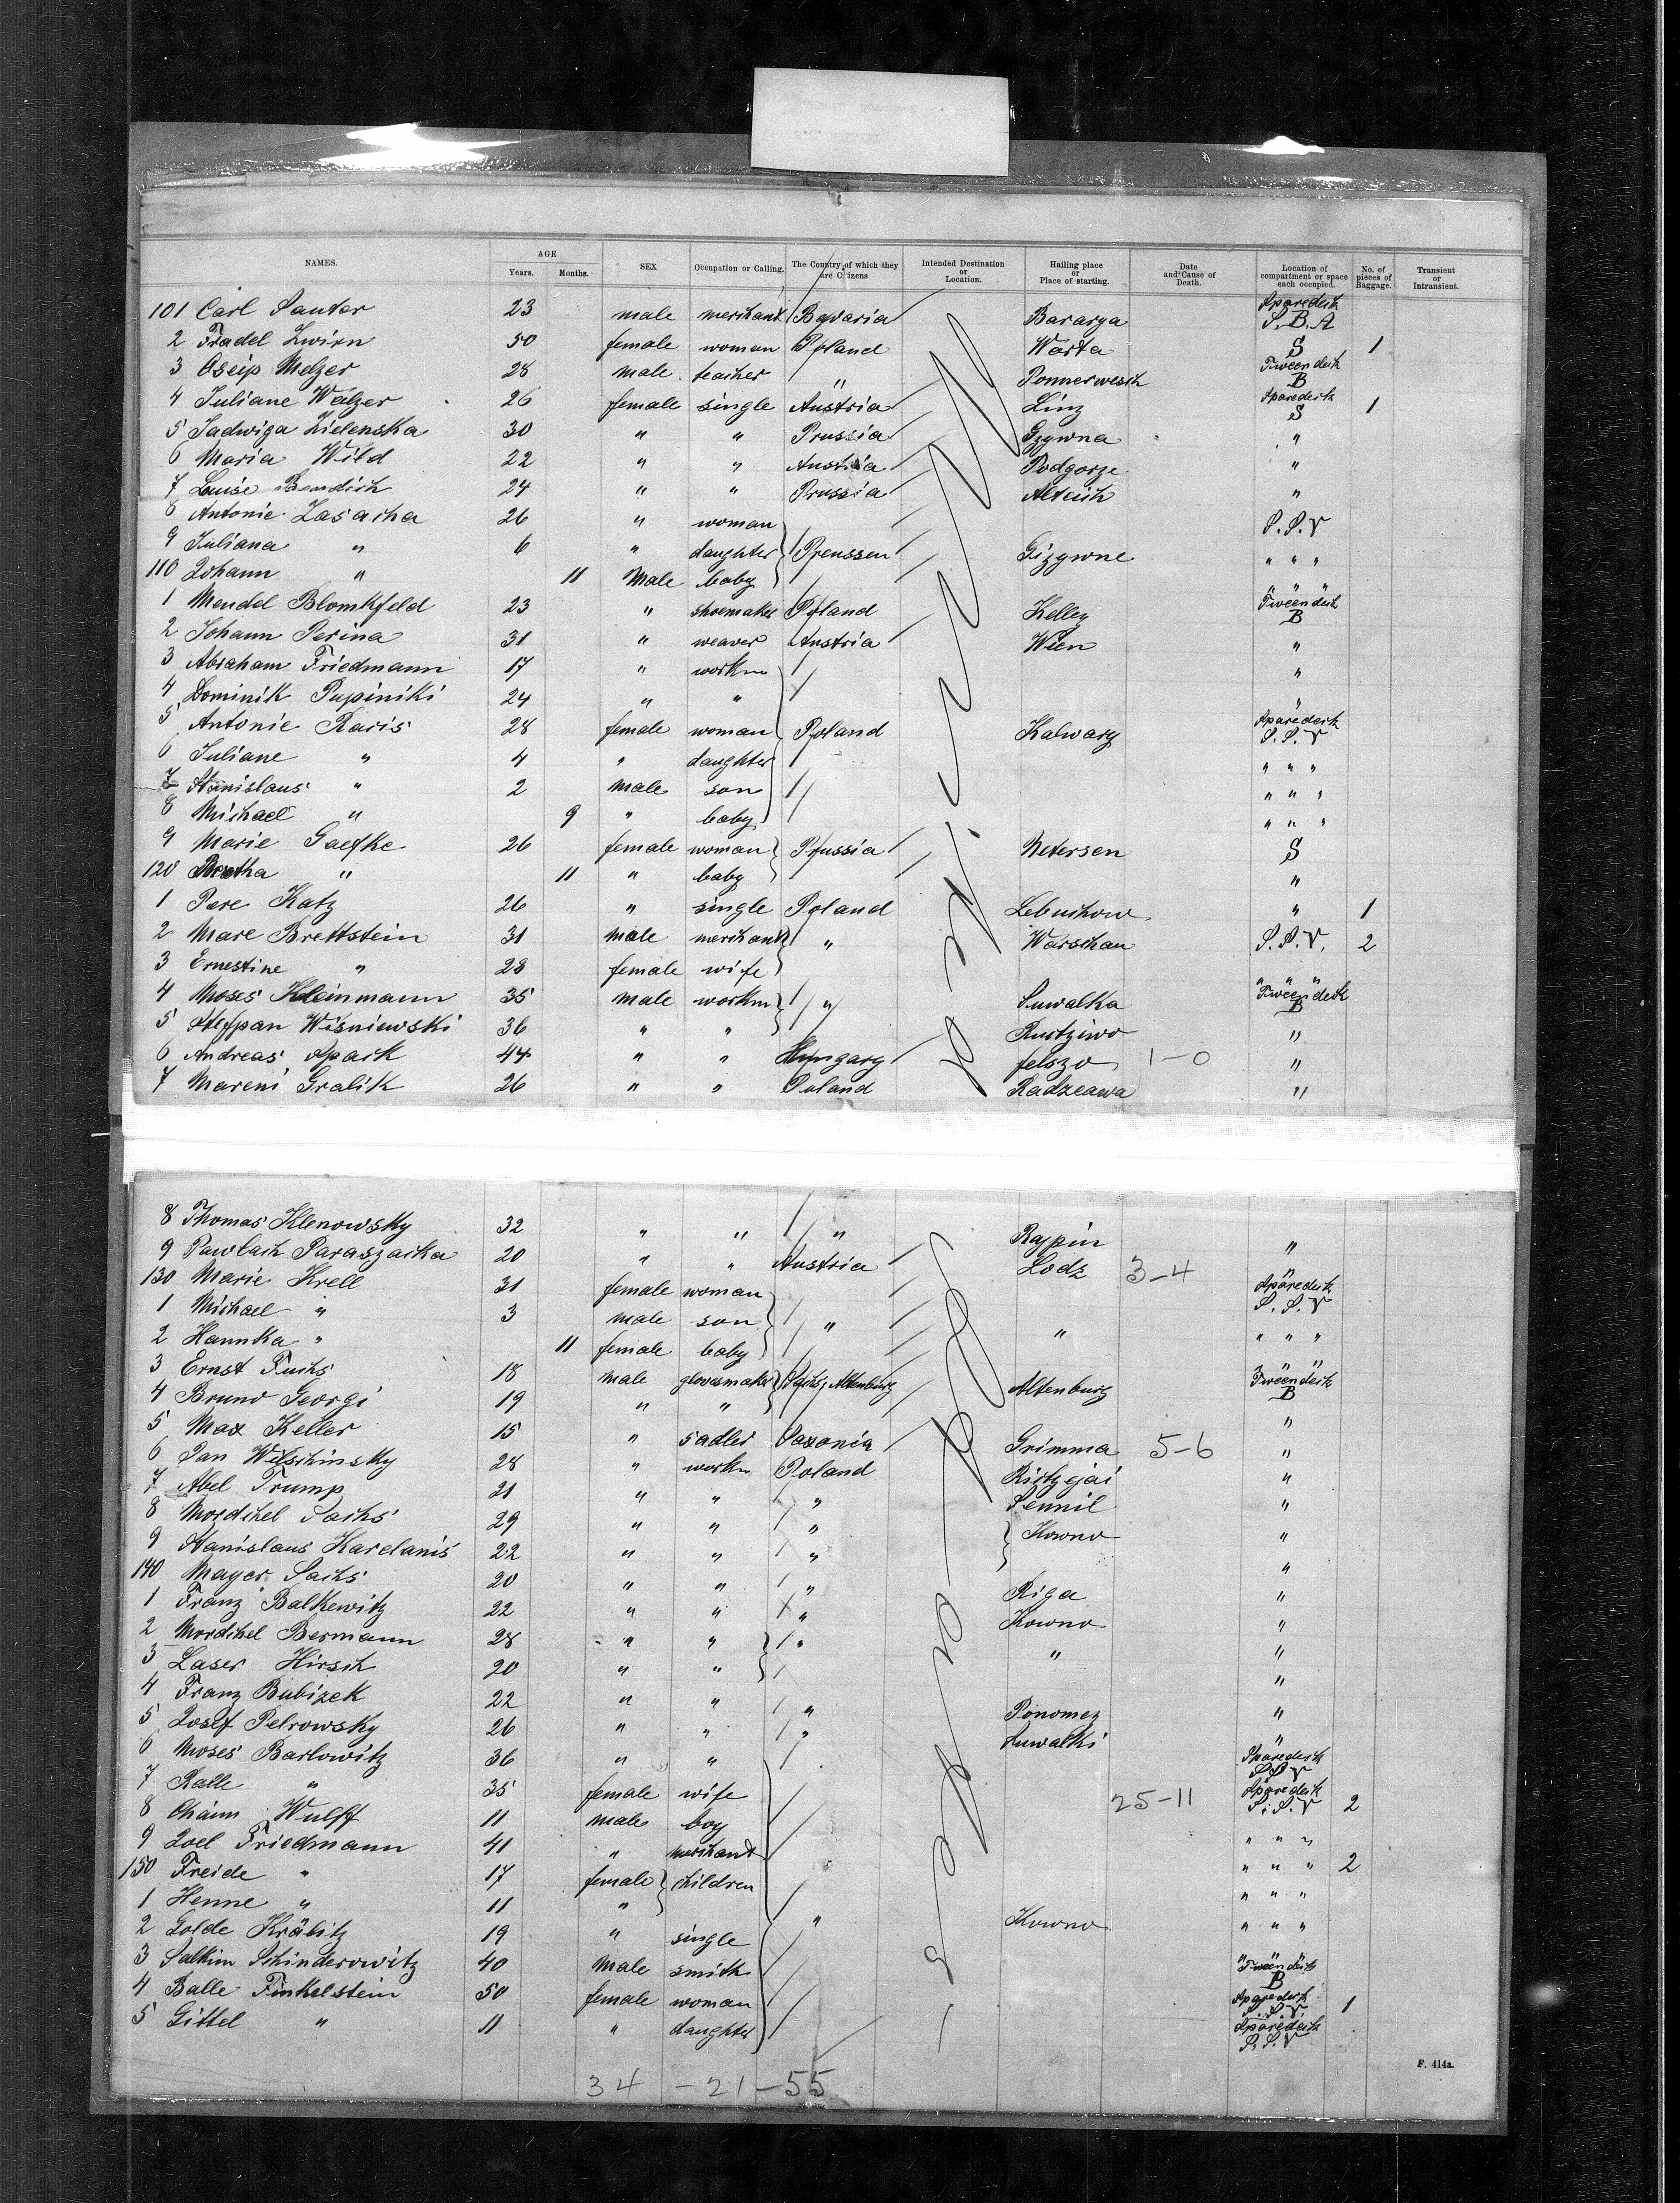 NAMES. AGE SEX Occupation or Calling. The Country of which they are Citizens Intended Destination or Location. Hailing place or Place of starting. Date and Cause of Death. Location of compartment or space each occupied. No. of pieces of Baggage. Transient or Intransient.
Years. Months.
101 Carl Sauter 23 male merchant Bavaria Bararya Sparedeck S.B.A
2 Fradel Zwirn 50 female woman Poland Warta S 1
3 Oseip Melzer 28 male teacher " Ponnerwesch Tweendeck B
4 Juliane Walzer 26 female single Austria Linz Sparedeck S 1
5 Jadwiga Zielenska 30 " " Prussia Gzywna "
6 Maria Wild 22 " " Austria Podgorze "
7 Louise Bendich 24 " " Prussia "
8 Antonie Zasacha 26 " woman S.S.V
9 Juliana " 6 " daughter Preussen Gizywne " " "
110 Johann " 11 Male baby " " "
1 Mendel Blomkfeld 23 " shoemaker Poland Kelley Tweendeck B
2 Johann Perina 31 " weaver Austria Wien "
3 Abraham Friedmann 17 " workm "
4 Dominik Pupiniki 24 " " "
5 Antonie Raris 28 female woman Poland Kalwary Sparedeck S.S.V
6 Juliane " 4 " daughter " " "
7 Stanislaus " 2 male son " " "
8 Michael " 9 " baby " " "
9 Marie Gaefke 26 female woman Prussia Netersen S
120 Bertha " 11 " baby "
1 Pere Katz 26 " single Poland Lebuchow " 1
2 Mare Brettstein 31 male merchant " Warschau S.S.V. 2
3 Ernestine " 28 female wife " " "
4 Moses Kleinmann 35 male workm " Suwalka Tweendeck B
5 Steppan Wisniewski 36 " " Rustziwo "
6 Andreas Spack 44 " " Hungary felszo 1-0 "
7 Mareni Gralik 26 " " Poland Radzeawa "
8 Thomas Klenowsky 32 " " " Raypin "
9 Pawlach Paraszacka 20 " " Austria Lodz 3-4 "
130 Marie Krell 31 female woman Sparedeck S.S.V
1 Michael " 3 male son " " " " "
2 Hannka " 11 female baby " " "
3 Ernst Fuchs 18 male glovesmaker Sachs Altenburg Altenburg Tweendeck B
4 Bruno Georgi 19 " " "
5 Max Keller 15 " sadler Saxonia Grimma 5-6 "
6 Jan Witschinsky 28 " workm Poland Ristzejai "
7 Abel Trump 21 " " " Sennil "
8 Mordchel Sachs 29 " " " Kowno "
9 Stanislaus Kardanis 22 " " " "
140 Mayer Sachs 20 " " " Riga "
1 Franz Balkewitz 22 " " " Kowno "
2 Mordchel Bermann 28 " " " " "
3 Laser Hirsch 20 " " "
4 Franz Bubizek 22 " " " Ponomez "
5 Josef Petrowsky 26 " " " Suwalki "
6 Moses Barlowitz 36 " " Sparedeck S.S.V
7 Ralle " 35 female wife Sparedeck
8 Chaim Wulff 11 male boy 25-11 S.S.V 2
9 Joel Friedmann 41 " merchant " " "
150 Freide " 17 female children " " " 2
1 Henne " 11 " " " "
2 Golde Kräbitz 19 " single " Kowno " " "
3 Salkim Schinderowitz 40 Male smith Tweendeck B
4 Balle Finkelstein 50 female woman Sparedeck S.S.V. 1
5 Gittel " 11 " daughter Sparedeck S.S.V
F. 414a.
34 - 21 - 55